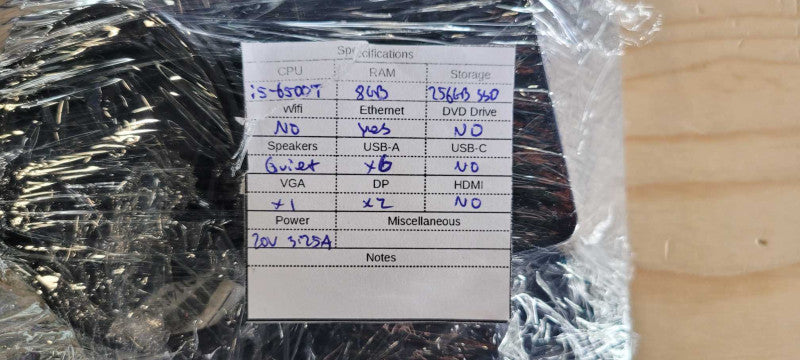 Specifications
CPU RAM Storage
i5-6500T 8GB 256GB SSD
Wifi Ethernet DVD Drive
NO yes NO
Speakers USB-A USB-C
Quiet x6 NO
VGA DP HDMI
x1 x2 NO
Power Miscellaneous
20V 3.25A
Notes